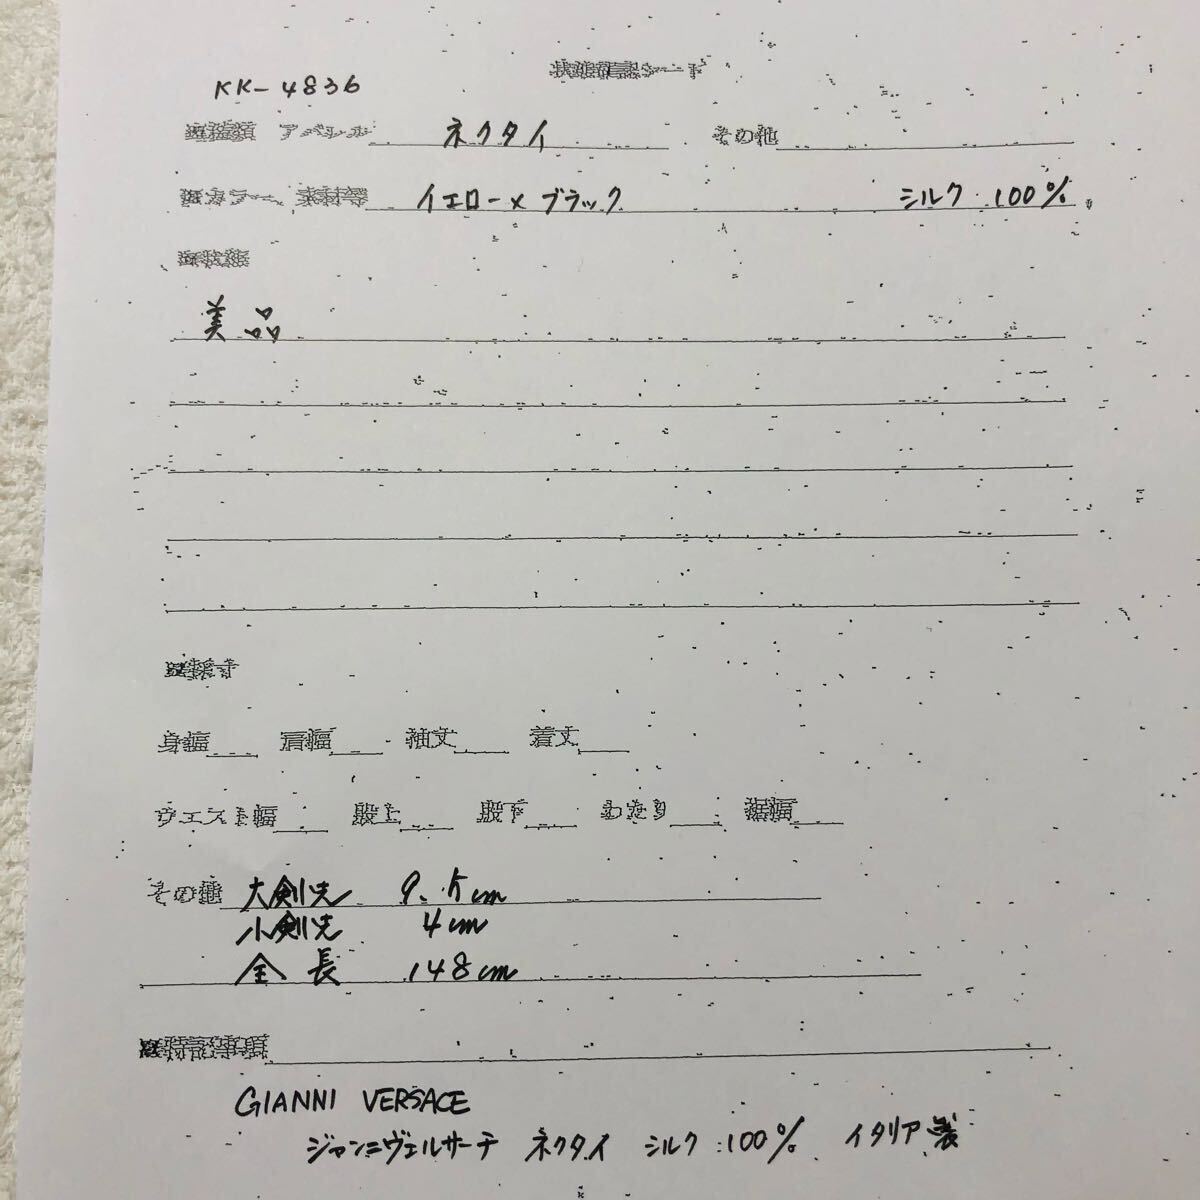 状態確認シート
KK-4836
アパレル ネクタイ その他
カラー、素材等 イエロー×ブラック シルク100%
美品
身幅 肩幅 袖丈 着丈
ウエスト幅 股上 股下 わたり 裾幅
その他 大剣先 9.5cm
小剣先 4cm
全長 148cm
特記事項
GIANNI VERSACE
ジャンニヴェルサーチ ネクタイ シルク100% イタリア製